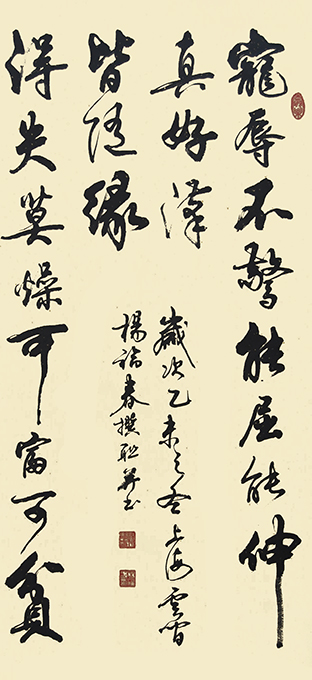 寵辱不驚能屈能伸
真好漢
得失莫燥可富可貧
皆随緣
歲次乙未之冬上海雲間
楊瑞春撰聯并书